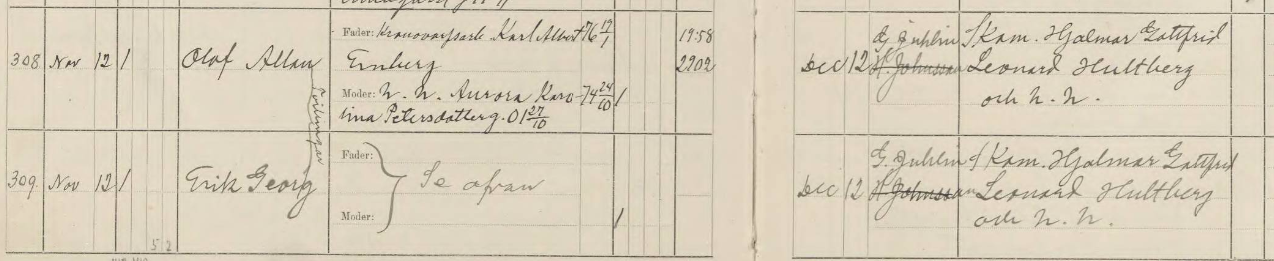 Fader: Kronovarfsarb Karl Albert 76 19/1 19:58
308 Nov 12 1 Olof Allan Ernberg 2202
Moder: h. h. Aurora Karo- 74 24/10 1
lina Petersdotter g. 01 27/10
Tvillingar
Fader:
309 Nov 12 1 Erik Georg Se ofvan
Moder: 1
52
G. Juhlin Kam. Hjalmar Gottfrid
Dec 12 H. Johnsson Leonard Hultberg
och h. h.
G. Juhlin Kam. Hjalmar Gottfrid
Dec 12 H. Johnsson Leonard Hultberg
och h. h.